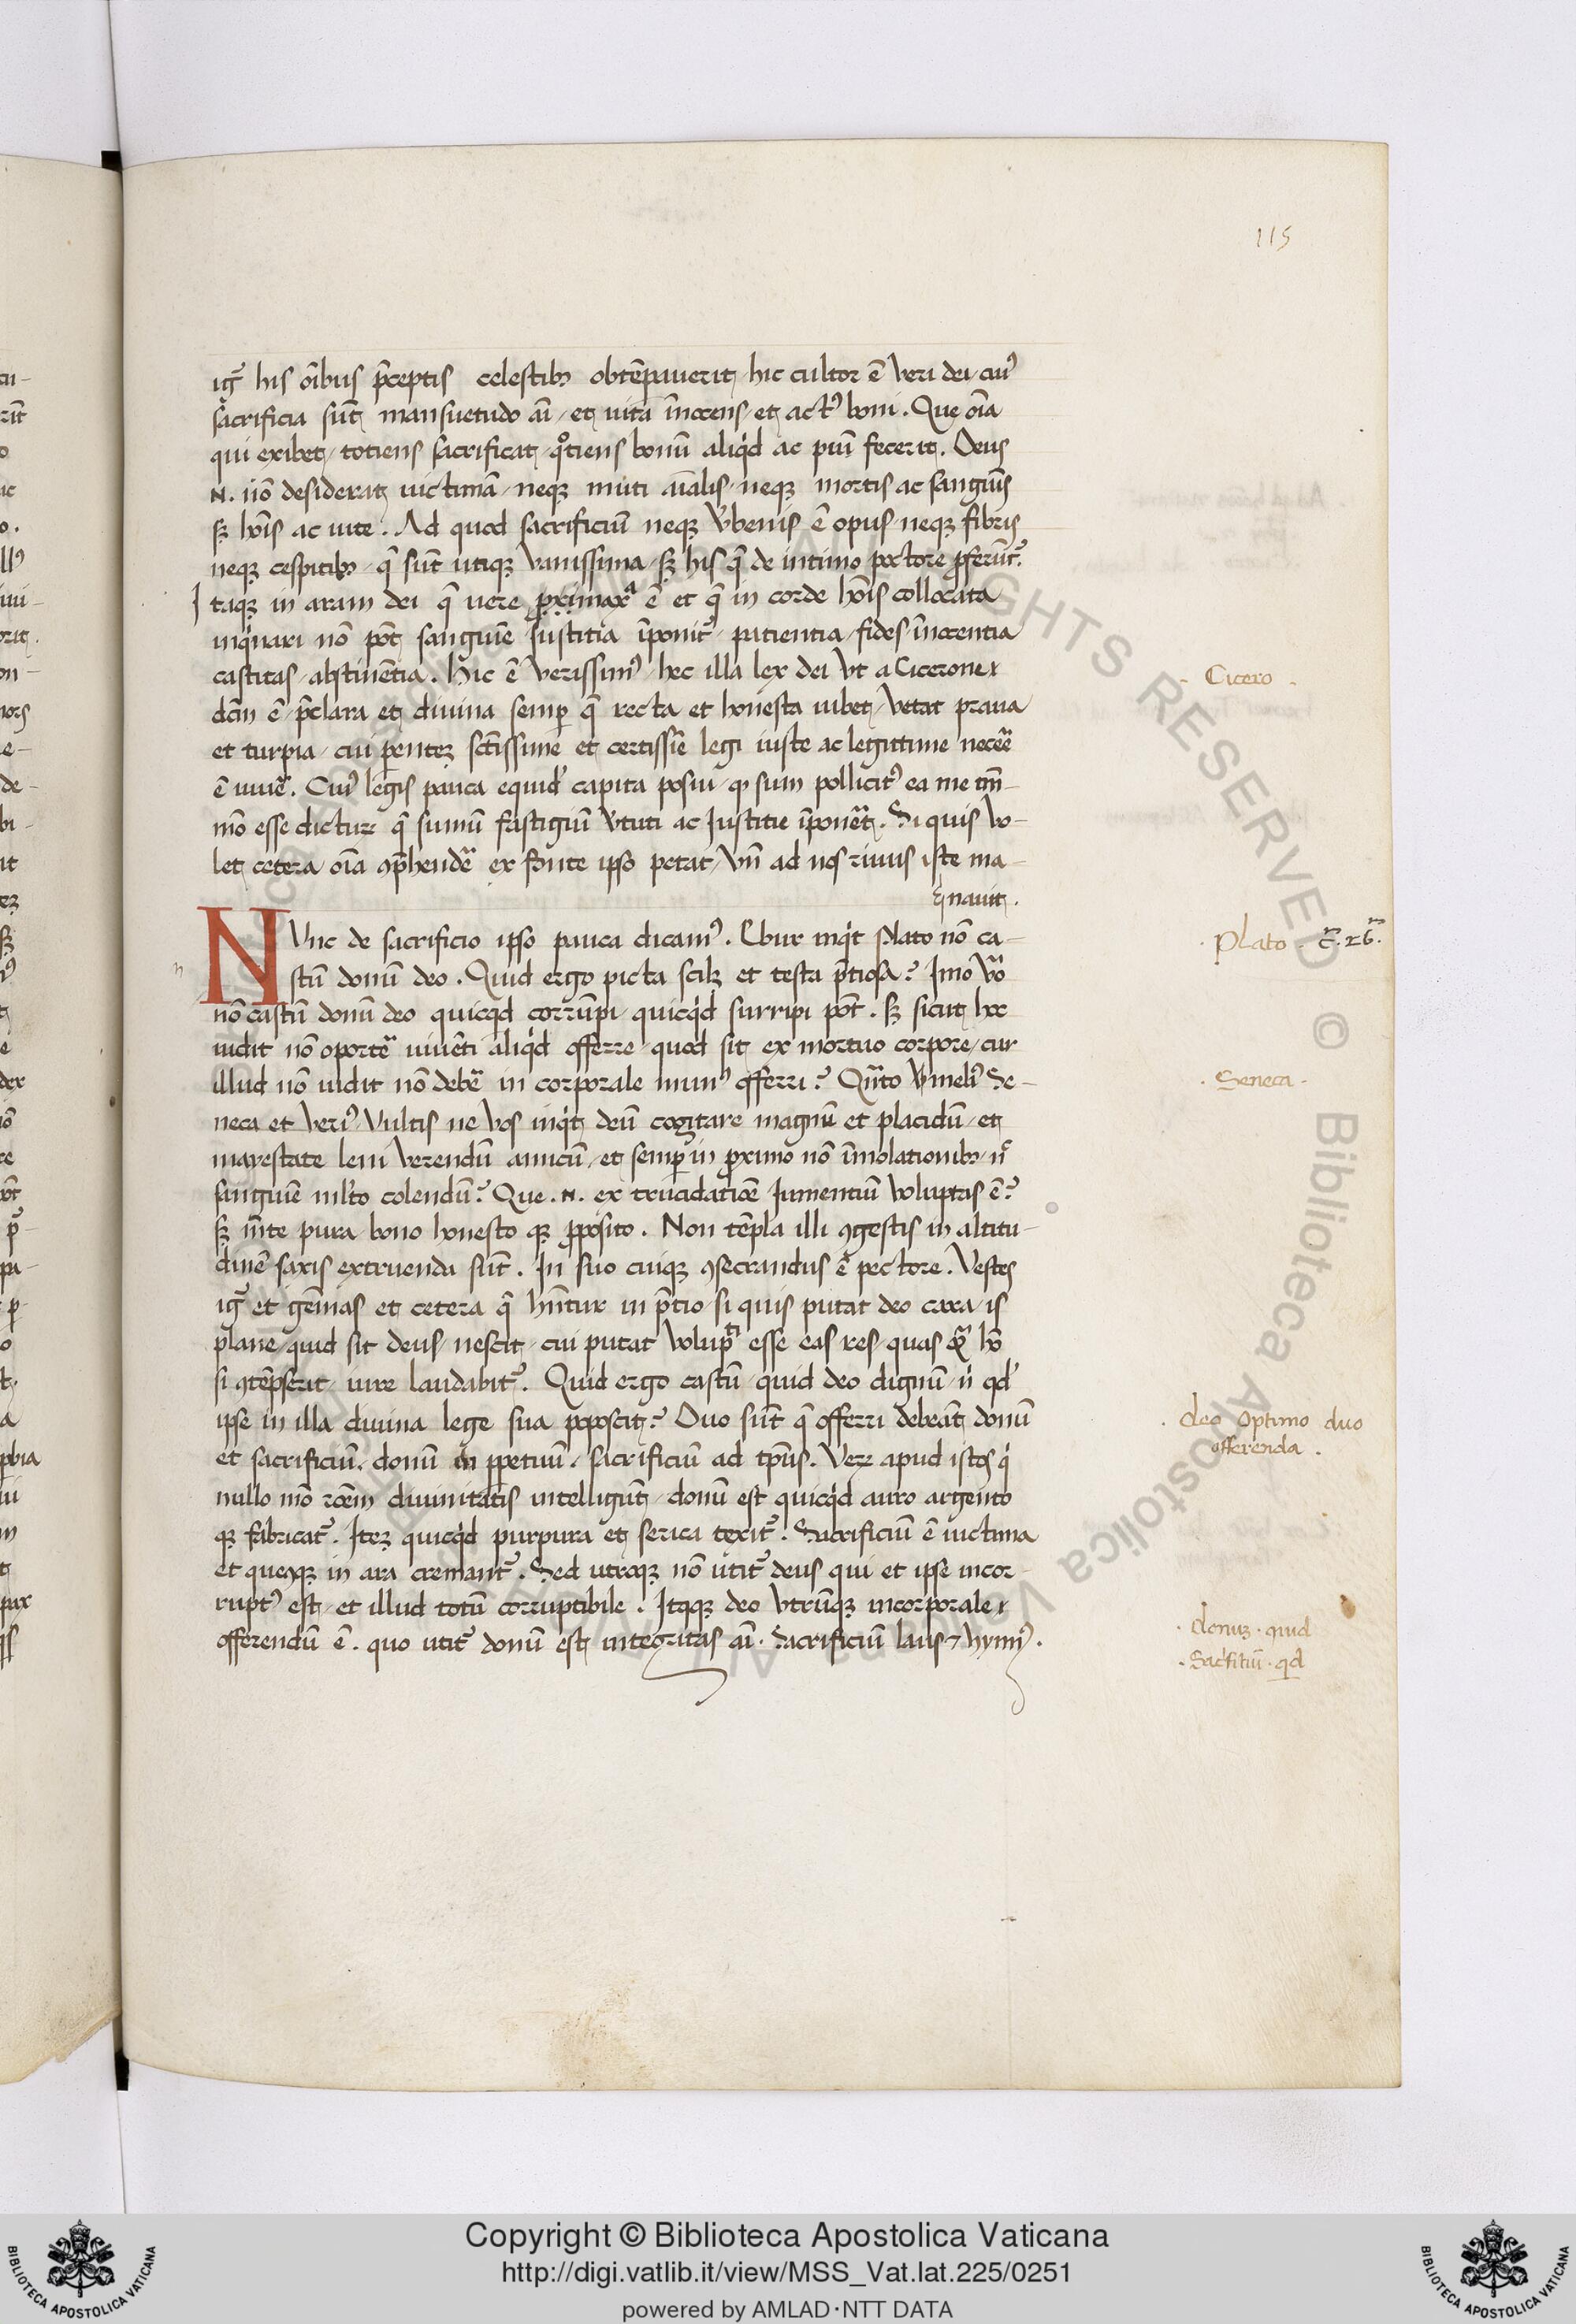 115
igr̄ his oı̄bus p̄ceptis celestibꝫ obtēpauerit hic cultor ē veri dei cuiꝰ
sacrificia sūt mansuetudo aı̄ et uita ı̄nocens et actꝰ boni. Que oı̄a
qui exibet totiens sacrificat qͦtiens bonū aliqͥd ac piū fecerit. Deus
.N. nō desiderat uictimā neqꝫ muti aı̄alis neqꝫ mortis ac sanguı̄s
sꝫ hoı̄s ac uite. Ad quod sacrificiū neqꝫ vͥbenis ē opus neqꝫ fibris
neqꝫ cespitibꝫ q̄ sūt utiqꝫ vanissima sꝫ his q̄ de intimo pectore ꝓferūt᷑
Itaqꝫ in aram dei q̄ uere ē et q̄ in corde hoı̄s collocata
inqͥnari nō pōt sanguinē Iustitia ı̄ponit᷑ patientia fides ı̄nocentia
castitas abstinētia. Hic ē verissimꝰ hec illa lex dei vt a Cicerone
dcm̄ ē p̄clara et diuina semꝑ q̄ recta et honesta iubet vetat praua
et turpia cui ꝑentez sctı̄ssime et certissiē legi iuste ac legittime necēe
ē uiuē. Cuiꝰ legis pauca equidē capita posui qꝫ sum pollicitꝰ ea me tm̄
mō esse dicturꝫ q̄ sumū fastigiū vͥtuti ac Iustitie ı̄ponēt. Si quis vo-
let cetera oı̄a ꝯp̄hendē ex fonte ipso petat vn̄ ad nos riuus iste ma-
nauit.
NVnc de sacrificio ipso pauca dicamꝰ. Ebur inqͥt Plato nō ca-
stū donū deo. Quid ergo picta scilꝫ et texta p̄tiosa? Imo vͦo
nō castū donū deo quicqͥd corrūpi quicqͥd surripi pōt. sꝫ sicut hoc
uidit nō oportē uiuēti aliqͥd offerre quod sit ex mortuo corpore cur
illud nō uidit nō debē in corporale munꝰ offerri? Qn̄to vͦ meliꝰ Se-
neca et veriꝰ Vultis ne vos inqͥt deū cogitare magnū et placidū et
mayestate leni verendū amicū et semꝑ in ꝓximo nō ı̄molationibꝫ n̄
sanguinē mlto colendū? Que .N. ex trucidatiōe Iumentiū voluptas ē?
sꝫ mēte pura bono honesto qꝫ ꝓposito. Non tēpla illi ꝯgestis in altitu-
dinē saxis extruenda sūt. In suo cuiqꝫ ꝯsecrandus ē pectore. Vestes
igr̄ et gēmas et cetera q̄ hn̄tur in p̄tio si quis putat deo cara is
plane quid sit deus nescit cui putat voluptͥ esse eas res quas hō
si ꝯtēpserit iure laudabit᷑. Quid ergo castū quid deo dignū nͥ qd̄
ipse in illa diuina lege sua poposcit? Duo sūt q̄ offerri debeāt donū
et sacrificiū. donū in ꝑpetuū. sacrificiū ad tp̄us. Verꝫ apud istos qͥ
nullo mō rōem diuinitatis intelligūt donū est quicqͥd auro argento
qꝫ fabricat᷑. Itez quicqͥd purpura et serica texit᷑. Sacrificiū ē uictima
et quecūqꝫ in ara cremant᷑. Sed utroqꝫ nō utit᷑ deus qui et ipse incor-
ruptꝰ est et illud totū corruptibile. Itaqꝫ deo vtrūqꝫ incorporale
offerendū ē. quo utit᷑ donū est integritas aı̄. Sacrificiū laus ⁊ hymꝰ.
. Cicero .
. Plato . c̄. 26.
. Seneca .
. deo optimo duo
offerenda .
. donuz . quid
. Sacrifitiū . qͥd
Copyright © Biblioteca Apostolica Vaticana
http://digi.vatlib.it/view/MSS_Vat.lat.225/0251
powered by AMLAD·NTT DATA